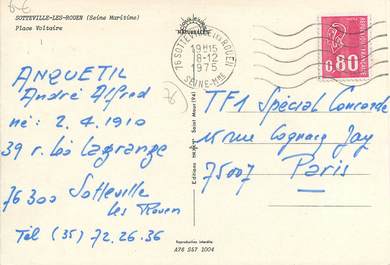 SOTTEVILLE-LES-ROUEN (Seine Maritime)
Place Voltaire
NATURELLES
76 SOTTEVILLE LES ROUEN
18H15
8-12
1975
SEINE-MME
0,80
ANQUETIL
André Alfred
né: 2.4.1910
39 r. Léo Lagrange
76300 Sotteville
les Rouen
Tél (35) 72.26.36
TF1 Spécial Concorde
15 rue Cognacq Jay
75007 Paris
Editions
Saint Maur (94)
Reproduction interdite
A76 557 1004